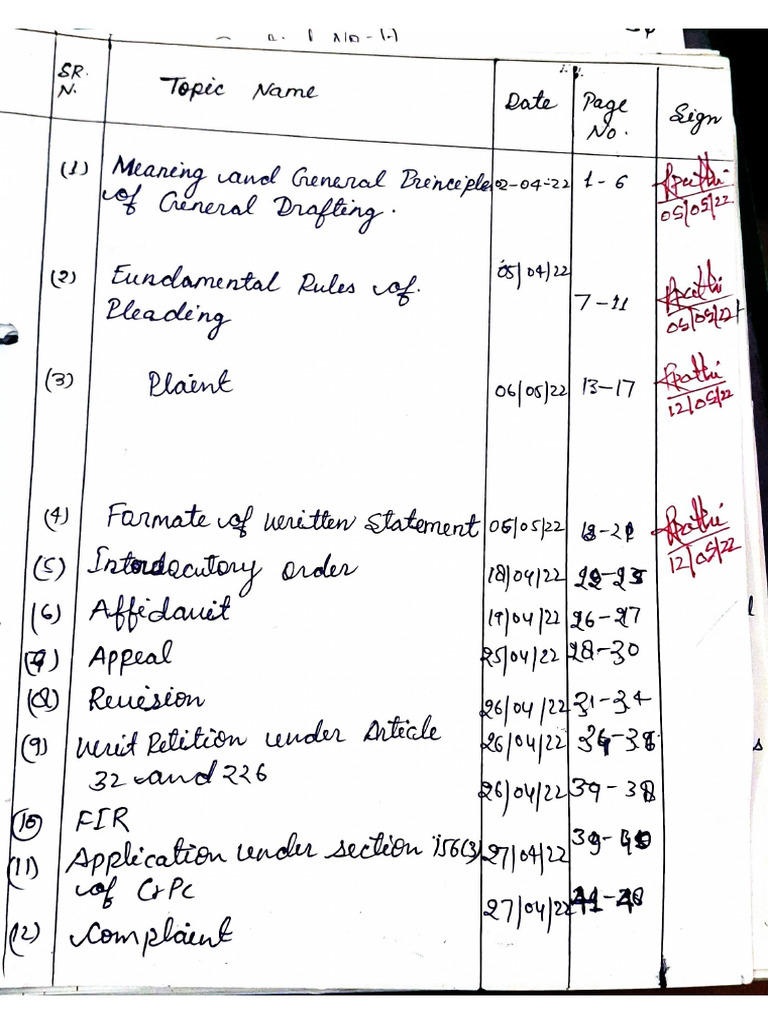 SR. N. Topic Name Date Page No. Sign
(1) Meaning and General Principle 02-04-22 1-6
of General Drafting. 05/05/22
(2) Fundamental Rules of 05/04/22
Pleading 7-11 05/05/22
(3) Plaint 06/05/22 13-17
12/05/22
(4) Formate of written statement 06/05/22
12/05/22
(5) order 18/04/22
(6) Affidavit 19/04/22 26-27
(7) Appeal 25/04/22 28-30
(8) Revision 26/04/22 31-34
(9) Writ Petition under Article 26/04/22
32 and 226 26/04/22
(10) FIR
(11) Application under section 156(3) 27/04/22
of CrPc 27/04/22
(12) Complaint